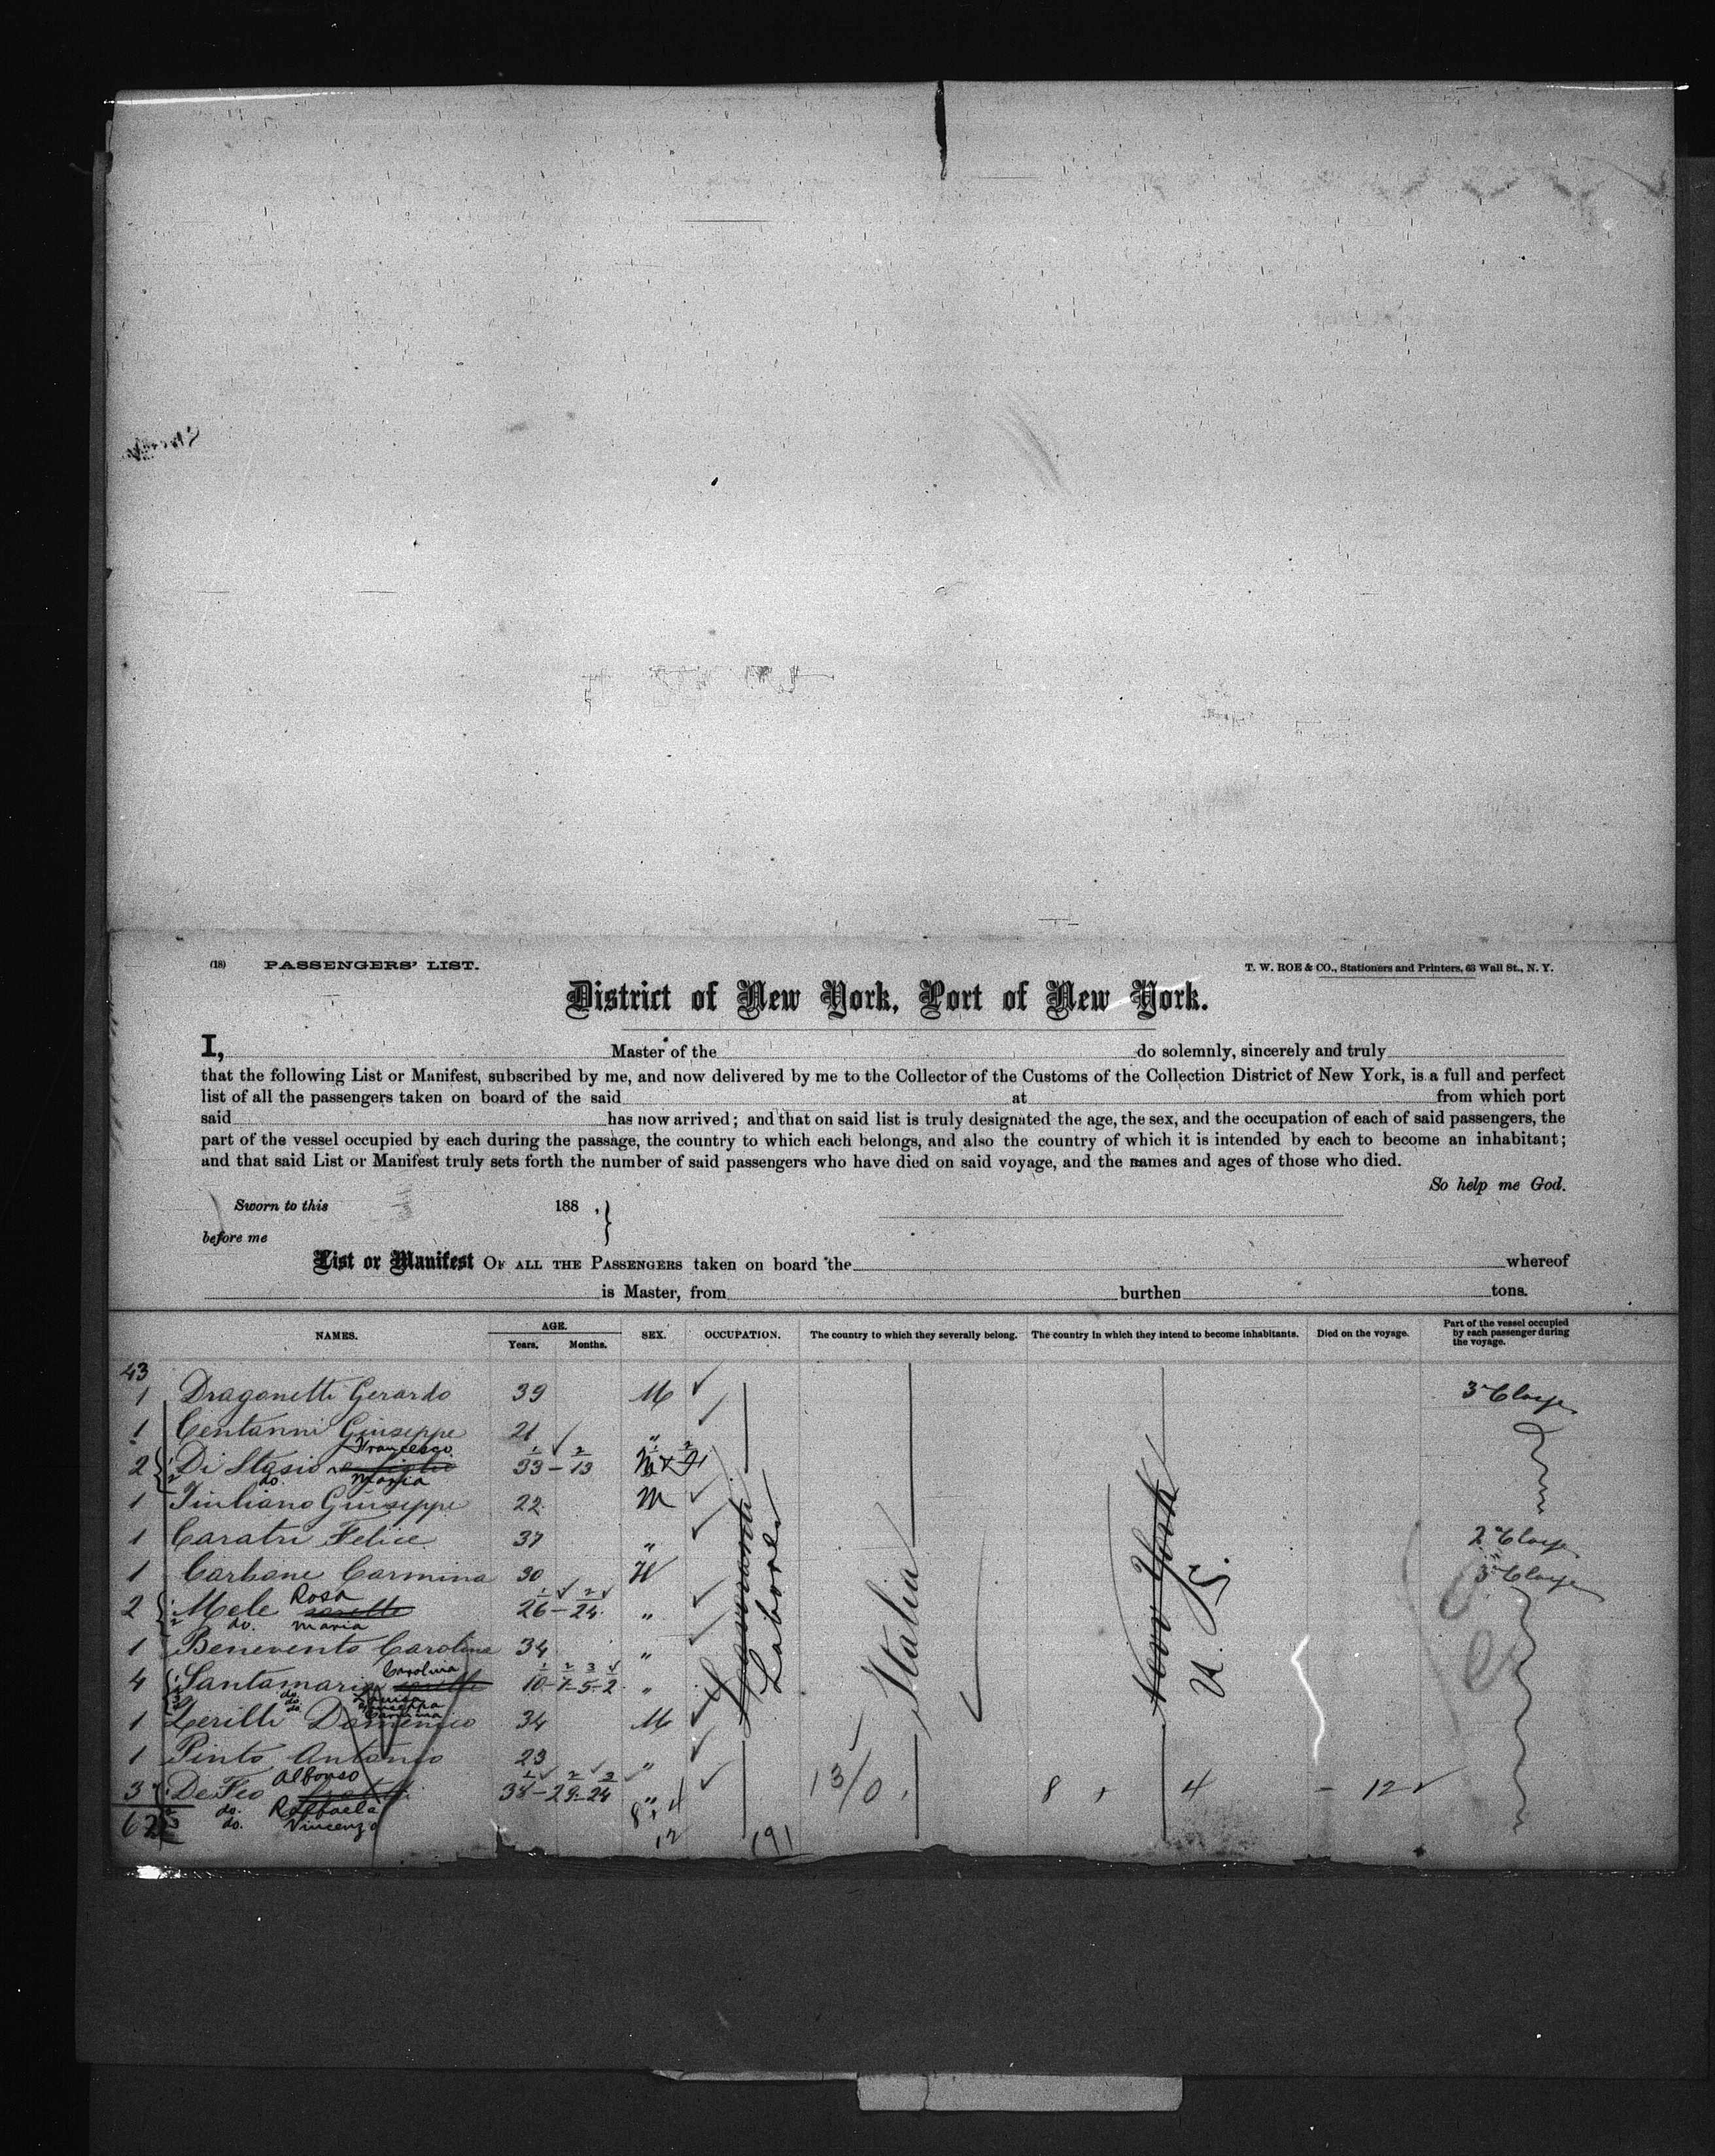 (18) PASSENGERS' LIST. T. W. ROE & CO., Stationers and Printers, 63 Wall St., N. Y.
District of New York, Port of New York.
I, Master of the do solemnly, sincerely and truly
that the following List or Manifest, subscribed by me, and now delivered by me to the Collector of the Customs of the Collection District of New York, is a full and perfect
list of all the passengers taken on board of the said at from which port
said has now arrived; and that on said list is truly designated the age, the sex, and the occupation of each of said passengers, the
part of the vessel occupied by each during the passage, the country to which each belongs, and also the country of which it is intended by each to become an inhabitant;
and that said List or Manifest truly sets forth the number of said passengers who have died on said voyage, and the names and ages of those who died.
So help me God.
Sworn to this 188 ,
before me
List or Manifest OF ALL THE PASSENGERS taken on board the whereof
is Master, from burthen tons.
NAMES. AGE. Years. Months. SEX. OCCUPATION. The country to which they severally belong. The country in which they intend to become inhabitants. Died on the voyage. Part of the vessel occupied by each passenger during the voyage.
43
1 Draganetti Gerardo 39 M 3
1 Centanni Giuseppe 21 "
Francesco
2 Di Stasio 33-13
do. Maria
1 Giuliano Giuseppe 22 M
1 Caratri Felice 37 " 2
1 Carbone Carmina 30 W 3
2 Mele Rosa 26-24 "
do. Maria
1 Benevento Carolina 34 "
Carolina
4 Santamaria 10-7-5-2 "
do. Louisa
do. Giuseppa
do. Carmina
1 Zerilli Domenico 34 M
1 Pinto Antonio 23 "
3 De Feo Alfonso 38-29-24 "
do. Raffaela
do. Vincenzo
62
Laborer
Italia
New York
U. S.
13/0 8 + 4 - 12
8 + 4
12
191